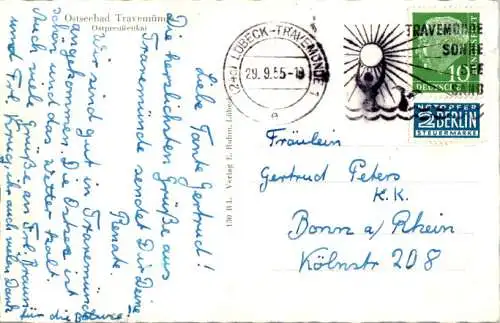 Ostseebad Travemünde
Ostpreußenkai
Liebe Tante Gertrud!
Die herzlichsten Grüße aus
Travemünde sendet Dir Deine
Renate.
Wir sind gut in Travemünde
angekommen. Die Ostsee ist
schön und das Wetter kalt.
Auch viele Grüße an Frl. Braun
und Frl. Krieg, ihr auch vielen Dank
für die
130 BL. Verlag E. Lübeck
(24a) LÜBECK-TRAVEMÜNDE 1
29.9.55-18
a
TRAVEMÜNDE
SONNE
SEE
10
DEUTSCHE
NOTOPFER
2 BERLIN
STEUERMARKE
Fräulein
Gertrud Peters
K.K.
Bonn a/Rhein
Kölnstr 208